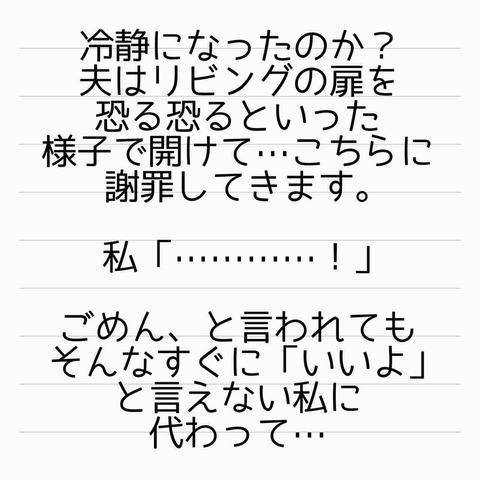 冷静になったのか？
夫はリビングの扉を
恐る恐るといった
様子で開けて…こちらに
謝罪してきます。
私「…………！」
ごめん、と言われても
そんなすぐに「いいよ」
と言えない私に
代わって…